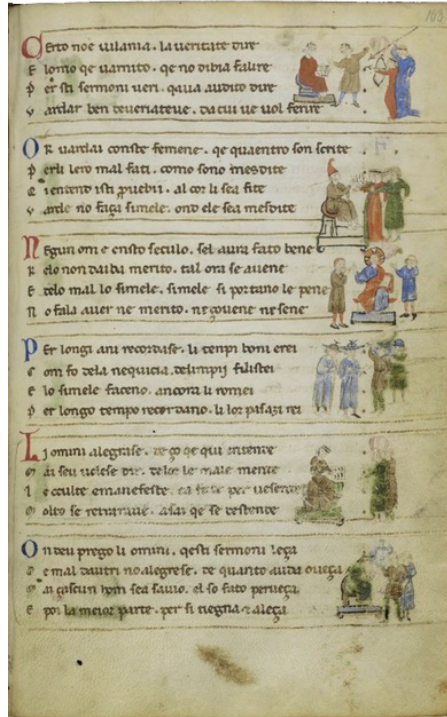 103
Certo noe vilania. la veritate dire
E lomo qe varnito. qe no dibia falire
Per sti sermoni veri. qaua audito dire
Vardar ben deveriateve. da cui ve vol ferire
Or vardai conste femene. qe quaentro son scrite
Per li lero mal fati. como sono mesdite
E intend isti puebii. al cor li sea fite
Varde no faça simele. ond ele sea mesdite
Negun om e ensto seculo. sel aura fato bene
Kelo non daiba merito. tal ora se avene
E telo mal lo simele. simele si portano le pene
No fala aver ne merito. ne çovene ne sene
Per longi ani recordase. li tenpi boni erei
Com fo dela nequicia. delimpij filistei
E lo simele faceno. ancora li romei
Per longo tempo recordano. li lor pasazi rei
Li omini alegrase. de ço qe qui entende
Mai seu volese dir. de lor le maie mente
Le oculte emanefeste.
Molto se retrarave. asai qe se destende
On deu prego li omini. qesti sermoni leça
De mal dautri no alegrese. de quanto auda oveça
Mai çascun hom sea savio. el so fato perveça
E por la meior parte. per si tiegna & aleça